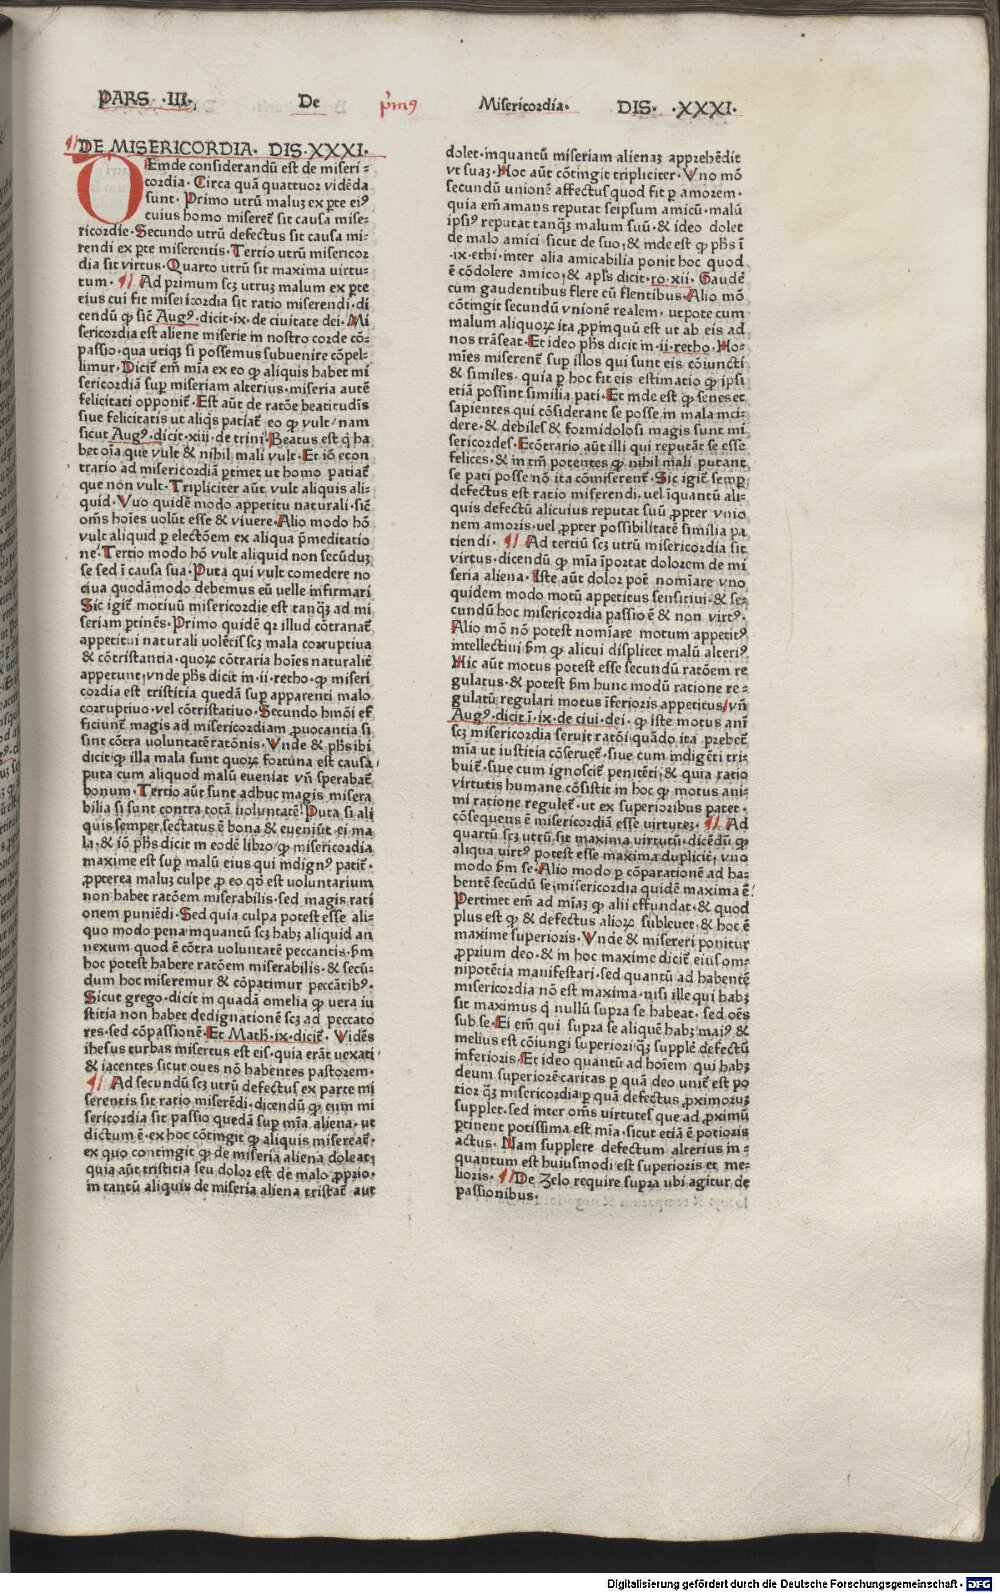 PARS ·III· De p̄mꝰ Misericordia· DIS· ·XXXI·
DE MISERICORDIA· DIS·XXXI·
Einde considerandū est de miseri⸗
cordia· Circa quā quattuor vidēda
sunt· Primo utrū malūz ex pte eiꝰ
cuius homo miseret̄ sit causa mise⸗
ricordie· Secundo utrū defectus sit causa mi⸗
rendi ex pte miserentis· Tertio utrū misericor
dia sit virtus· Quarto utrū sit maxima uirtu⸗
tum· ¶ Ad primum scꝫ utruꝫ malum ex pte
eius cui fit misericordia sit ratio miserendi· di
cendū ꝙ sic̄ Augꝰ·dicit·ix·de ciuitate dei· Mi
sericordia est aliene miserie in nostro corde cō⸗
passio·qua utiqꝫ si possemus subuenire cōpel⸗
limur· Dicit̄ em̄ mīa ex eo ꝙ aliquis habet mi
sericordiā sup miseriam alterius·miseria autē
felicitati opponit̄· Est aūt de ratōe beatitudīs
siue felicitatis ut aliqs patiat̄ eo ꝙ vult· nam
sicut Augꝰ·dicit·xiii·de trini· Beatus est q̇ ha
bet oīa que vult & nihil mali vult· Et iō econ
trario ad misericordiā ptinet ut homo patiat̄
que non vult· Tripliciter aūt vult aliquis ali⸗
quid· Vno quidē modo appetitu naturali·sic̄
om̄s hoīes uolūt esse & viuere· Alio modo hō
vult aliquid p electōem ex aliqua p̄meditatio
ne· Tertio modo hō vult aliquid non secūduꝫ
se sed ī causa sua· Puta qui vult comedere no
ciua quodāmodo debemus eū uelle infirmari
Sic igit̄ motiuū misericordie est tanqꝫ ad mi
seriam ptinēs· Primo quidē qꝛ illud cōtrariat̄
appetitui naturali volētis scꝫ mala corruptiua
& cōtristantia·quoꝝ cōtraria hoīes naturalit̄
appetunt· vnde phs̄ dicit in·ii·retho·ꝙ miseri
cordia est tristitia quedā sup apparenti malo
corruptiuo·vel cōtristatiuo· Secundo hmōi ef
ficiunt̄ magis ad misericordiam ꝓuocantia si
sint cōtra voluntatē ratōnis· Vnde & phs̄ ibi
dicit ꝙ illa mala sunt quoꝝ fortuna est causa·
puta cum aliquod malū eueniat vn̄ sperabat̄
bonum· Tertio aūt sunt adhuc magis misera
bilia si sunt contra totā uoluntatē· Puta si ali
quis semper sectatus ē bona & eueniūt ei ma
la· & iō phs̄ dicit in eodē libro ꝙ misericordia
maxime est sup malū eius qui indignꝰ patit̄·
ꝓpterea maluꝫ culpe ꝓ eo qđ est voluntarium
non habet ratōem miserabilis·sed magis rati
onem puniēdi· Sed quia culpa potest esse ali⸗
quo modo pena inquantū scꝫ habꝫ aliquid an
nexum quod ē cōtra voluntatē peccantis·s̄m
hoc potest habere ratōem miserabilis·& secū⸗
dum hoc miseremur & cōpatimur peccātibꝰ·
Sicut grego·dicit in quadā omelia ꝙ uera iu
stitia non habet dedignationē scꝫ ad peccato
res·sed cōpassionē· Et Math·ix·dicit̄· Vidēs
ihesus turbas misertus est eis·quia erāt uexati·
& iacentes sicut oues nō habentes pastorem·
¶ Ad secundū scꝫ utrū defectus ex parte mi
serentis sit ratio miserēdi·dicendū ꝙ cum mi
sericordia sit passio quedā sup mīa aliena·ut
dictum ē·ex hoc cōtingit ꝙ aliquis misereat̄·
ex quo contingit ꝙ de miseria aliena doleat·
quia aūt tristitia seu dolor est de malo ꝓprio·
in tantū aliquis de miseria aliena tristat̄ aut
dolet·inquantū miseriam alienaꝫ apprehēdit
vt suaꝫ· Hoc aūt cōtingit tripliciter· Vno mō
secundū unionē affectus quod fit p amorem·
quia em̄ amans reputat seipsum amicū·malū
ipsiꝰ reputat tanqꝫ malum suū·& ideo dolet
de malo amici sicut de suo·& inde est ꝙ phs̄ ī
·ix·ethi·inter alia amicabilia ponit hoc quod
ē cōdolere amico·& apls̄ dicit·ro·xii· Gaudē
cum gaudentibus flere cū flentibus· Alio mō
cōtingit secundū vnionē realem·utpote cum
malum aliquoꝝ ita ꝓpinquū est ut ab eis ad
nos trāseat· Et ideo phs̄ dicit in·ii·retho· Ho⸗
mīes miserent̄ sup illos qui sunt eis cōiuncti
& similes·quia p hoc fit eis estimatio ꝙ ipsi
etiā possint similia pati· Et inde est ꝙ senes et
sapientes qui cōsiderant se posse in mala inci⸗
dere·& debiles & formidolosi magis sunt mi
sericordes· Ecōtrario aūt illi qui reputāt se esse
felices·& in tm̄ potentes ꝙ nihil mali putant
se pati posse nō ita cōmiserent̄· Sic igit̄ semp
defectus est ratio miserendi·uel īquantū ali⸗
quis defectū alicuius reputat suū ꝓpter vnio
nem amoris·uel ꝓpter possibilitatē similia pa
tiendi· ¶ Ad tertiū scꝫ utrū misericordia sit
virtus·dicendū ꝙ mīa īportat dolorem de mi
seria aliena· Iste aūt dolor pot̄ nomīare vno
quidem modo motū appetitus sensitiui·& se⸗
cundū hoc misericordia passio ē & non virtꝰ·
Alio mō nō potest nomīare motum appetitꝰ
intellectiui s̄m ꝙ alicui displicet malū alteriꝰ
Hic aūt motus potest esse secundū ratōem re
gulatus·& potest s̄m hunc modū ratione re⸗
gulatū regulari motus īferioris appetitus· vn̄
Augꝰ·dicit ī·ix·de ciui·dei·ꝙ iste motus anī
scꝫ misericordia seruit ratōi quādo ita prebet̄
mīa ut iustitia cōseruet̄·siue cum indigēti tri⸗
buit̄·siue cum ignoscit̄ penitēti·& quia ratio
virtutis humane cōsistit in hoc ꝙ motus ani⸗
mi ratione regulet̄·ut ex superioribus patet·
cōsequens ē misericordiā esse uirtuteꝫ· ¶ Ad
quartū scꝫ utrū sit maxima uirtutū·dicēdū ꝙ
aliqua virtꝰ potest esse maxima duplicit̄· vno
modo s̄m se· Alio modo p cōparationē ad ha⸗
bentē secūdū se·misericordia quidē maxima ē·
Pertinet em̄ ad mīaꝫ ꝙ alii effundat·& quod
plus est ꝙ & defectus alioꝝ subleuet·& hoc ē
maxime superioris· Vnde & misereri ponitur
ꝓprium deo·& in hoc maxime dicit̄ eius om⸗
nipotētia manifestari·sed quantū ad habentē
misericordia nō est maxima·nisi ille qui habꝫ
sit maximus q̇ nullū supra se habeat·sed oēs
sub se· Ei em̄ qui supra se aliquē habꝫ maiꝰ &
melius est cōiungi superiori·qꝫ supplē defectū
inferioris· Et ideo quantū ad hoīem qui habꝫ
deum superiorē caritas p quā deo unit̄ est po
tior qꝫ misericordia·p quā defectus ꝓximoruꝫ
supplet·sed inter om̄s uirtutes que ad ꝓximū
ptinent potissima est mīa·sicut etiā ē potioris
actus· Nam supplere defectum alterius in⸗
quantum est huiusmodi est superioris et me⸗
lioris· ¶ De Zelo require supra ubi agitur de
passionibus·
Digitalisierung gefördert durch die Deutsche Forschungsgemeinschaft - DFG